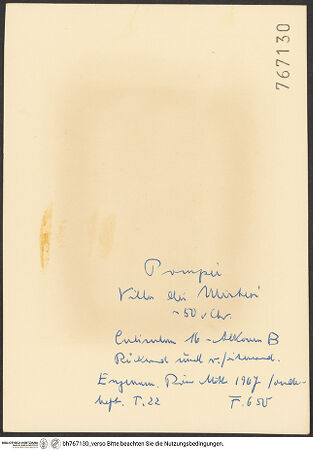 767130
Pompei
Villa dei Misteri
~ 50 v Chr.
Cubiculum 16 - Alkoven B
Rückwand und r. Seitenwand.
Röm Mitt 1967 Sonder-
heft. T. 22 F. 650
BIBLIOTHECA HERTZIANA
bh767130_verso Bitte beachten Sie die Nutzungsbedingungen.